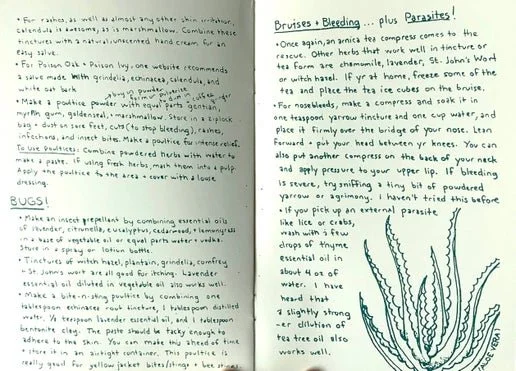 • For rashes, as well as almost any other skin irritation,
calendula is awesome, as is marshmallow. Combine these
tinctures with a natural unscented hand cream for an
easy salve.
• For Poison Oak + Poison Ivy, one website recommends
a salve made with grindelia, echinacea, calendula, and
white oak bark
• Make a poultice powder with equal parts gentian,
myrrh gum, goldenseal, + marshmallow. Store in a ziplock
bag + dust on sore feet, cuts (to stop bleeding), rashes,
infections, and insect bites. Make a poultice for intense relief.
To use Poultices: Combine powdered herbs with water to
make a paste. If using fresh herbs, mash them into a pulp.
Apply the poultice to the area + cover with a loose
dressing.
BUGS!
• Make an insect repellent by combining essential oils
of lavender, citronella, eucalyptus, cedarwood, + lemongrass
in a base of vegetable oil or equal parts water + vodka.
Store in a spray or lotion bottle.
• Tinctures of witch hazel, plantain, grindelia, comfrey
+ St. John's wort are all good for itching. Lavender
essential oil diluted in vegetable oil also works well.
• Make a bite-n-sting poultice by combining one
tablespoon echinacea root tincture, 1 tablespoon distilled
water, 1/8 teaspoon lavender essential oil, and 1 tablespoon
bentonite clay. The paste should be tacky enough to
adhere to the skin. You can make this ahead of time
+ store it in an airtight container. This poultice is
really good for yellow jacket bites/stings + bee stings.
Bruises + Bleeding ... plus Parasites!
• Once again, an arnica tea compress comes to the
rescue. Other herbs that work well in tincture or
tea form are chamomile, lavender, St. John's Wort
or witch hazel. If yr at home, freeze some of
the tea and place the tea ice cubes on the bruise.
• For nosebleeds, make a compress and soak it in
one teaspoon yarrow tincture and one cup water, and
place it firmly over the bridge of your nose. Lean
forward + put your head between yr knees. You can
also put another compress on the back of your neck
and apply pressure to your upper lip. If bleeding
is severe, try sniffing a tiny bit of powdered
yarrow or agrimony. I haven't tried this before
• If you pick up an external parasite
like lice or crabs,
wash with a few
drops of thyme
essential oil in
about 4 oz of
water. I have
heard that
a slightly strong
-er dilution of
tea tree oil also
works well.
(ALOE VERA!)